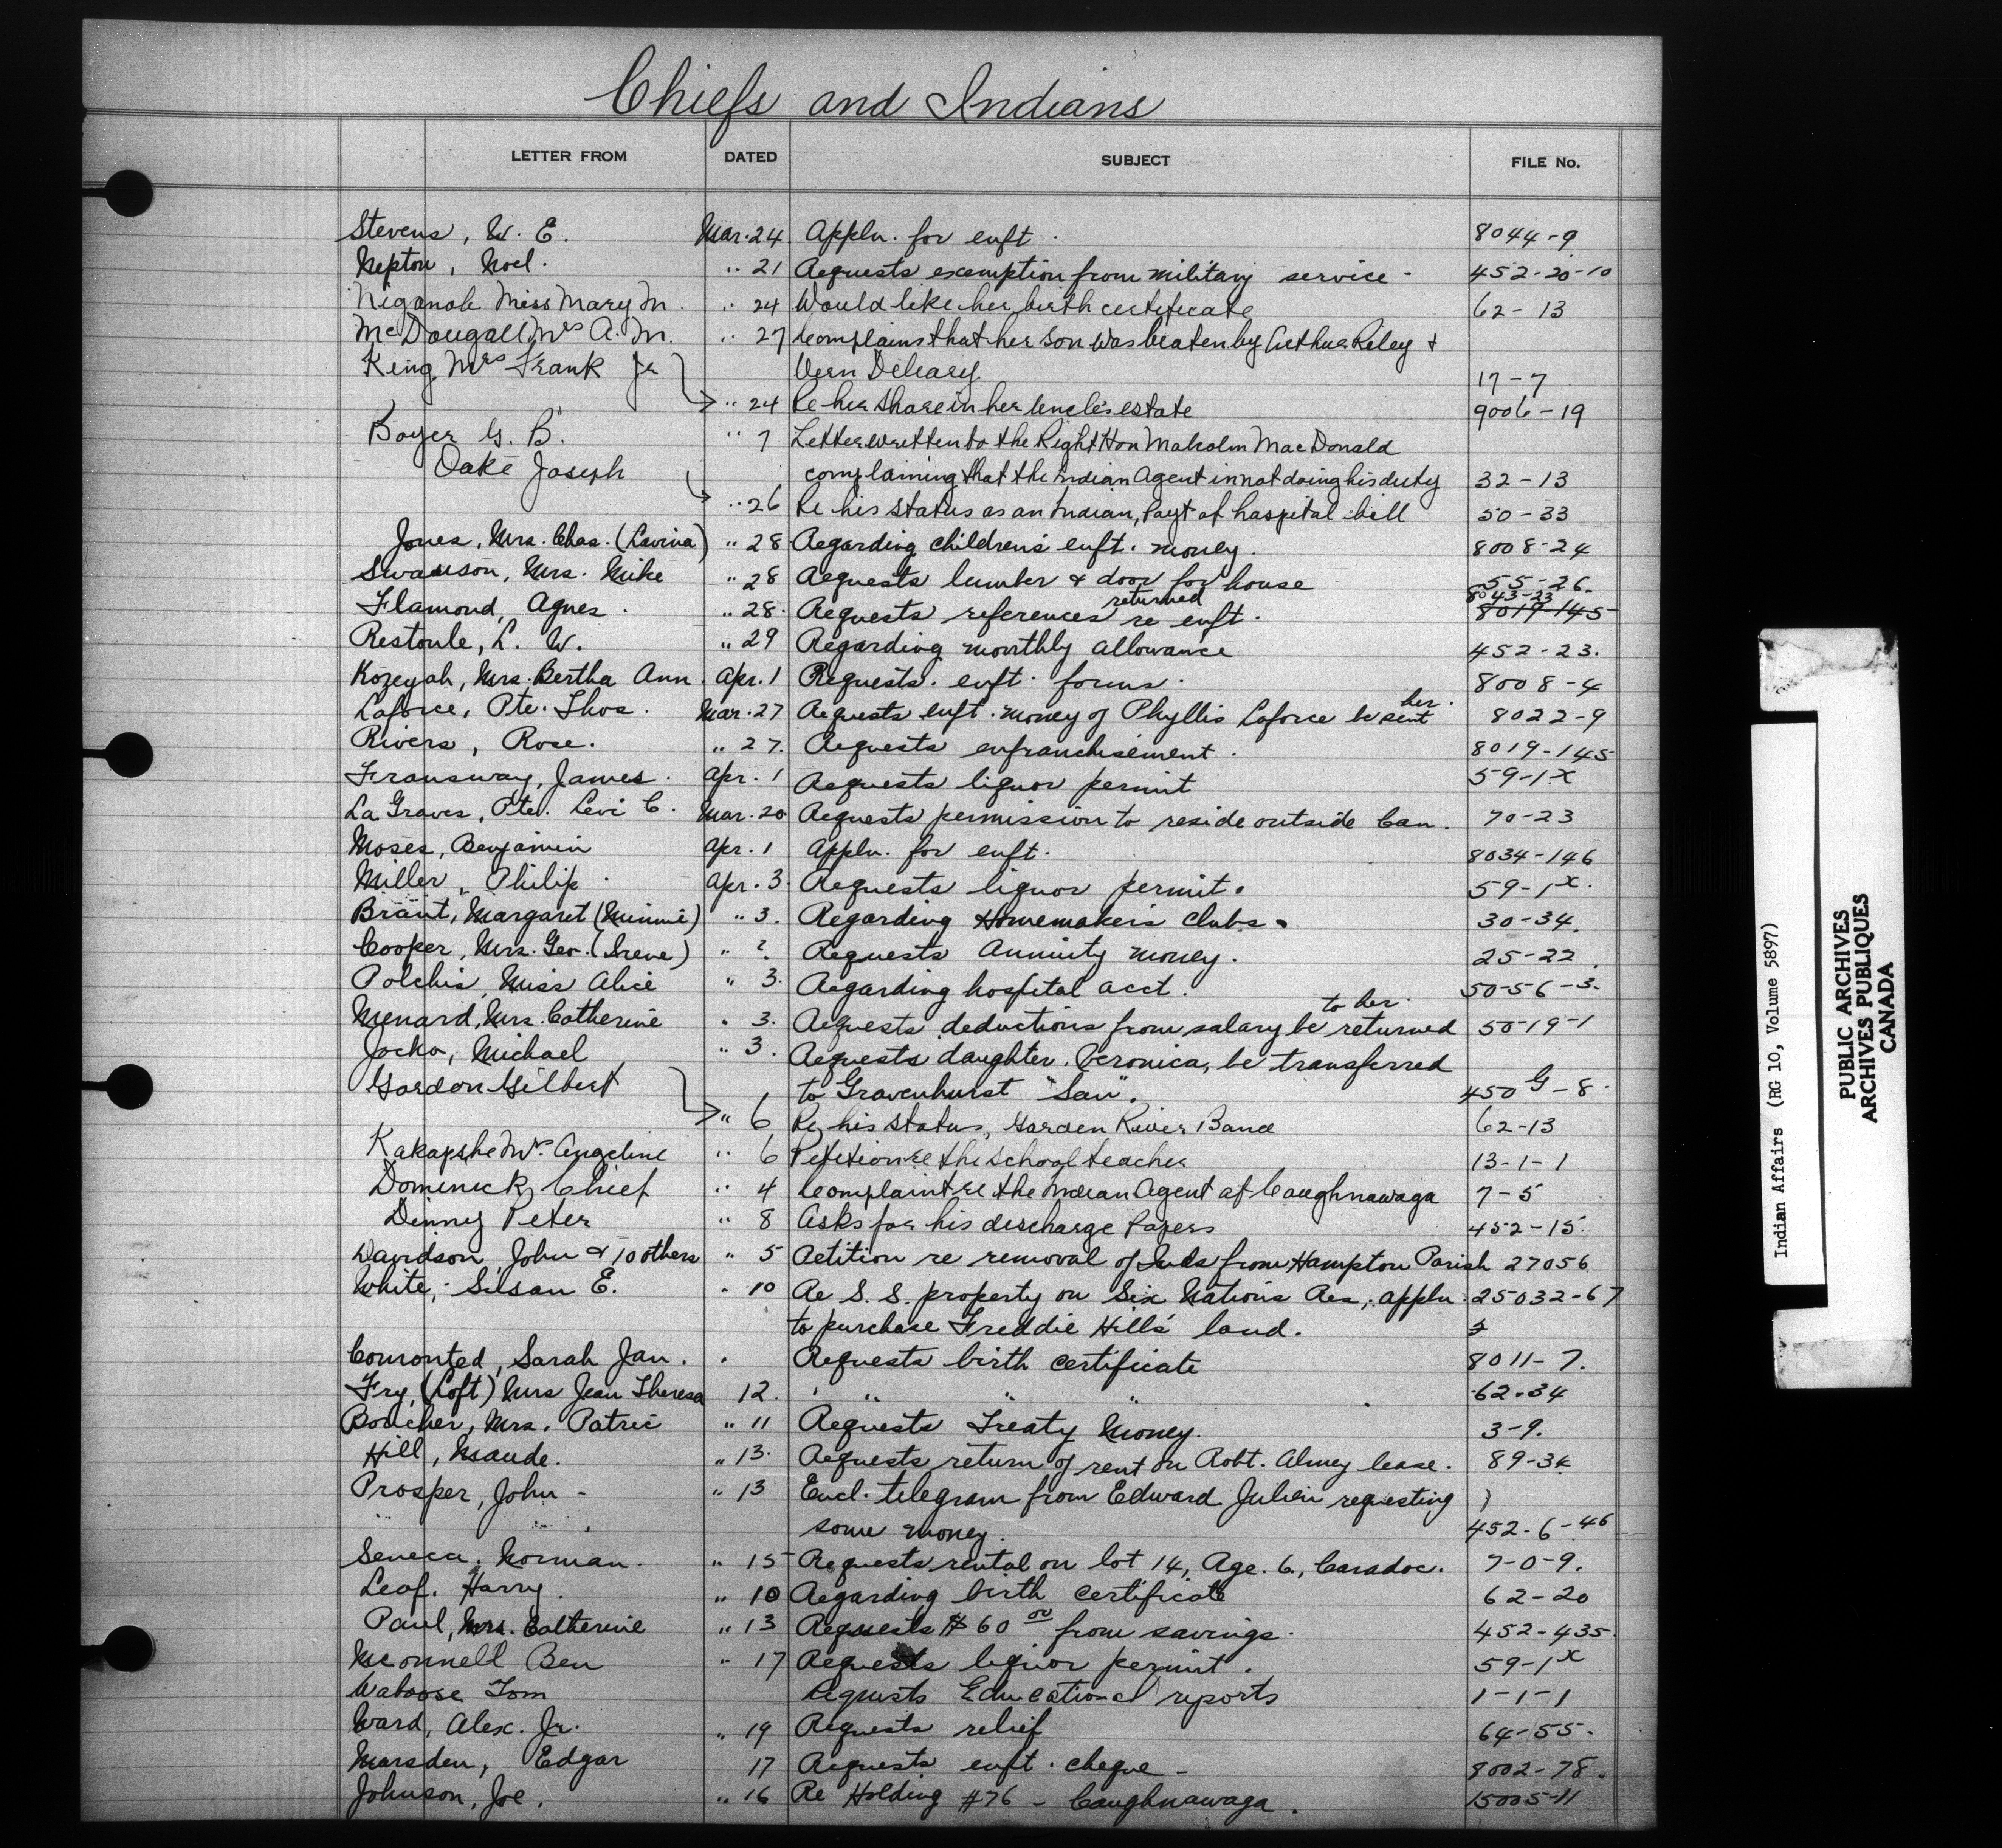 Chiefs and Indians
LETTER FROM DATED SUBJECT FILE No.
Stevens, W. E. Mar. 24. Appln. for enft. 8044-9
Nepton, Noel. " 21 Requests exemption from military service. 452-20-10
Niganob Miss Mary M. " 24 Would like her birth certificate 62-13
McDougall Mrs A. M. " 27 Complains that her son was beaten by Arthur Riley +
King, Mrs Frank Jr Vern Deleary. 17-7
" 24 Re her share in her Uncle's estate 9006-19
Boyer G. B. " 7 Letter written to the Right Hon Malcolm MacDonald
Oake Joseph complaining that the Indian Agent in not doing his duty 32-13
" 26 Re his status as an Indian, Payt of hospital bill 50-33
Jones, Mrs. Chas. (Lavina) " 28 Regarding children's enft. money. 8008-24
Swanson, Mrs. Mike " 28 Requests lumber & door for house 55-26.
returned 8043-23
Flamond, Agnes. " 28. Requests references re enft. 8019-145
Restoule, L. W. " 29 Regarding monthly allowance 452-23.
Kozeyah, Mrs. Bertha Ann. Apr. 1 Requests. enft. forms. 8008-4
her.
Laforce, Pte. Thos. Mar. 27 Requests enft. money of Phyllis Laforce be sent 8022-9
Rivers, Rose. " 27. Requests enfranchisement. 8019-145
Fransway, James. Apr. 1 Requests liquor permit 59-1-x
La Graves, Pte. Levi C. Mar. 20 Requests permission to reside outside Can. 70-23
Moses, Benjamin Apr. 1 Appln. for enft. 8034-146
Miller, Philip. Apr. 3. Requests liquor permit. 59-1x.
Brant, Margaret (Minnie) " 3. Regarding Homemaker's Clubs. 30-34.
Cooper, Mrs. Geo. (Irene) " ? Requests Annuity money. 25-22.
Polchis, Miss Alice " 3. Regarding hospital acct. 50-56-3.
to her.
Menard, Mrs. Catherine " 3. Requests deductions from salary be returned 50-19-1
Jocko, Michael " 3. Requests daughter, Veronica, be transferred
Gordon Gilbert to Gravenhurst "San". 450 G-8.
" 6 Re his status, Garden River Band 62-13
Kakapshe Mrs. Angeline " 6 Petition re the school teacher 13-1-1
Dominick, Chief " 4 Complaint re the Indian Agent at Caughnawaga 7-5
Dinny Peter " 8 Asks for his discharge papers 452-15
Davidson, John & 10 others " 5 Petition re removal of Inds from Hampton Parish 27056
White, Susan E. " 10 Re S. S. property on Six Nations Res., appln. 25032-67
to purchase Freddie Hill's land.
Comonted, Sarah Jan. Requests birth certificate 8011-7.
Fry, (Loft) Mrs Jean Theresa 12. " " " 62-34
Boucher, Mrs. Patric " 11 Requests Treaty Money. 3-9.
Hill, Maude. " 13. Requests return of rent on Robt. Almey lease. 89-34
Prosper, John - " 13 Encl. telegram from Edward Julien requesting
some money. 452-6-46
Seneca, Norman. " 15 Requests rental on lot 14, Rge. 6, Caradoc. 7-0-9.
Leaf. Harry. " 10 Regarding birth certificate 62-20
Paul, Mrs. Catherine " 13 Requests $60 00 from savings. 452-435.
McConnell Ben " 17 Requests liquor permit. 59-1x
Waboose Tom Requests Educational reports 1-1-1
Ward, Alex. Jr. " 19 Requests relief 64-55.
Marsden, Edgar 17 Requests enft. cheque - 8002-78.
Johnson, Joe. " 16 Re Holding #76 - Caughnawaga. 15005-11
Indian Affairs (RG 10, Volume 5897)
PUBLIC ARCHIVES
ARCHIVES PUBLIQUES
CANADA